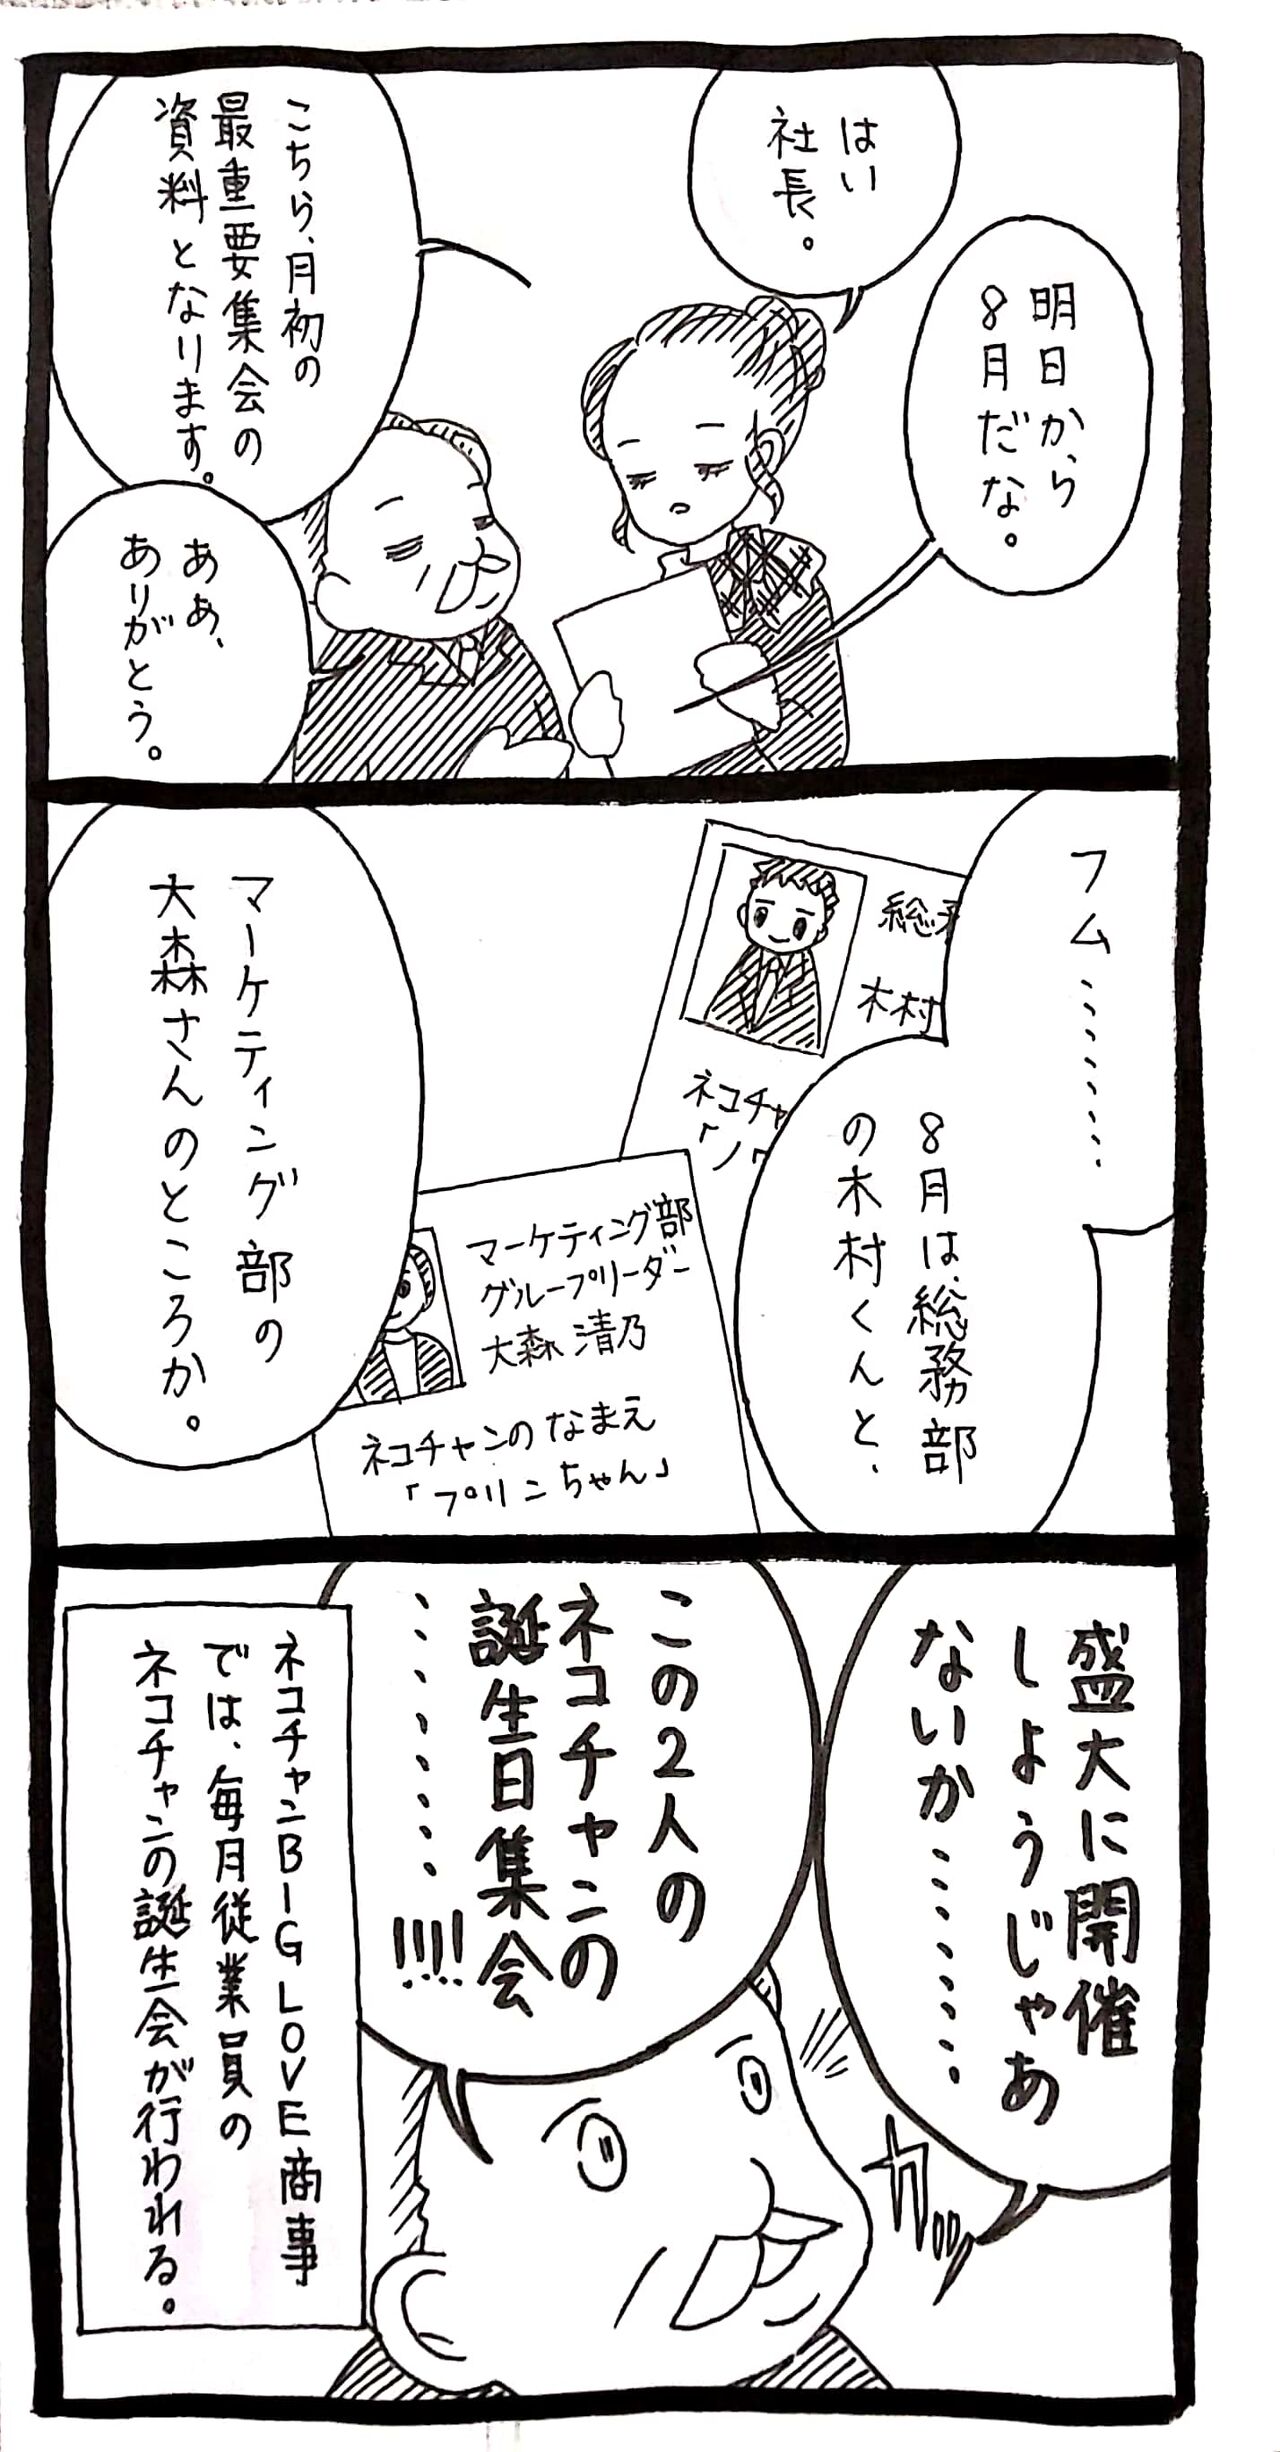 明日から
8月だな。
はい
社長。
こちら、月初の
最重要集会の
資料となります。
ああ、
ありがとう。
フム…………
8月は、総務部
の木村くんと、
総
木村
ネコチャ
マーケティング部の
大森さんのところか。
マーケティング部
グループリーダー
大森 清乃
ネコチャンの なまえ
「プリンちゃん」
盛大に開催
しようじゃあ
ないか…………
この2人の
ネコチャンの
誕生日集会
…………!!!!
カッ
ネコチャンBIGLOVE商事
では、毎月従業員の
ネコチャンの誕生会が行われる。